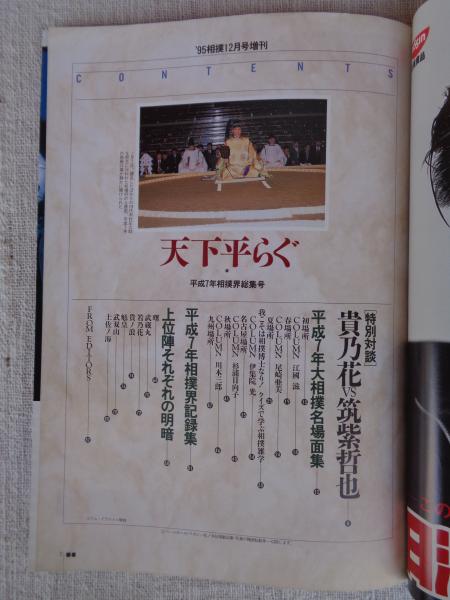 '95相撲12月号増刊
CONTENTS
天下平らぐ
平成7年相撲界総集号
[特別対談]
貴乃花VS筑紫哲也
平成7年大相撲名場面集
初場所
COLUMN 江國 滋
春場所
COLUMN 尾崎亜美
夏場所
我こそは相撲博士なり!クイズで学ぶ相撲雑学
COLUMN 伊集院 光
名古屋場所
COLUMN 杉浦日向子
秋場所
COLUMN 川本三郎
九州場所
平成7年相撲界記録集
上位陣それぞれの明暗
曙
武蔵丸
若乃花
貴ノ浪
魁皇
武双山
土佐ノ海
FROM EDITORS
この